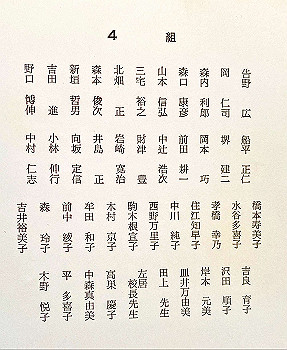 4 組
広
岡 仁司
森内 利郎
森口 康彦
山本 信弘
三宅 裕之
北畑 正
森本 俊次
新垣 哲男
吉田 進
野口 博伸
船平 正仁
堺 建二
岡本 巧
前田 耕一
中辻 浩次
財津 豊
岩崎 寛治
井島 正
向坂 定信
小林 伸行
中村 仁志
橋本寿美子
水谷多喜子
孝橋 幸乃
住江知早子
中川 純子
西野万里子
駒木根宣子
木村 京子
牟田 和子
前中 綾子
森 玲子
吉井裕美子
吉良 育子
沢田 順子
岸本 元美
皿井万由美
田上 先生
校長先生
高巣 慶子
中森真由美
平 多喜子
木野 悦子